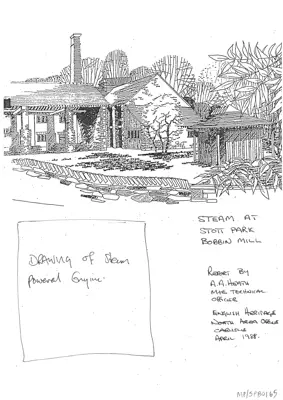 STEAM AT
STOTT PARK
BOBBIN MILL
DRAWING OF Steam
Powered Engine.
REPORT BY
A.A. HEATH
M&E TECHNICAL
OFFICER
ENGLISH HERITAGE
NORTH AREA OFFICE
CARLISLE
APRIL 1988.